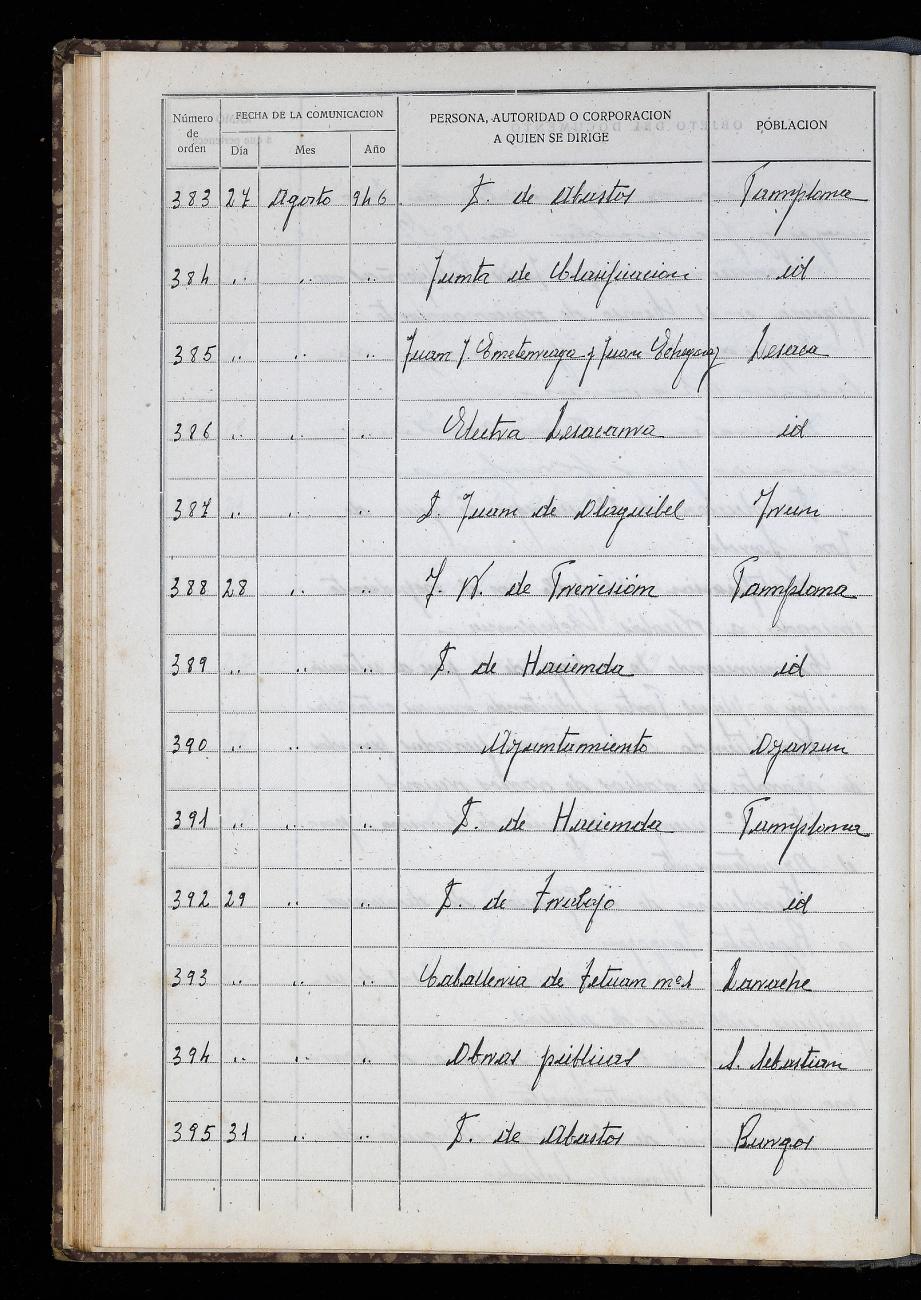 Número de orden | FECHA DE LA COMUNICACION | PERSONA, AUTORIDAD O CORPORACION A QUIEN SE DIRIGE | POBLACION
Día | Mes | Año
383 27 Agosto 946 D. de Abastos Pamplona
384 .. .. .. Junta de Clasificacion id
385 .. .. .. Juan J. y Juan Echegaray Lesaca
386 .. .. .. Electra Lesacarra id
387 .. .. .. D. Juan de Olaguibel Yrun
388 28 .. .. J. N. de Previsión Pamplona
389 .. .. .. D. de Hacienda id
390 .. .. .. Ayuntamiento Oyarzun
391 .. .. .. D. de Hacienda Pamplona
392 29 .. .. D. de Trabajo id
393 .. .. .. Caballeria de Tetuan nº1 Larache
394 .. .. .. Obras públicas S. Sebastian
395 31 .. .. D. de Abastos Burgos